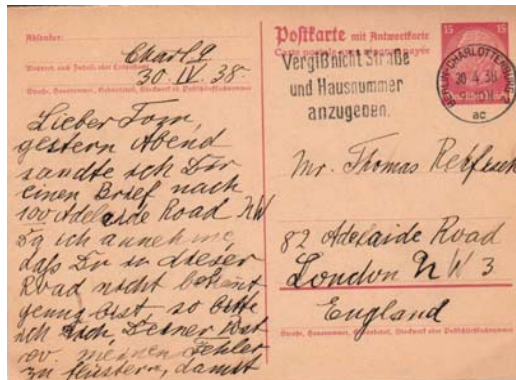 Absender:
Charl 9
Wohnort, auch Zustell- oder Leitpostamt
30. IV. 38.
Straße, Hausnummer, Gebäudeteil, Stockwerk od. Postschließfachnummer
Lieber Tom,
gestern Abend
sandte ich Dir
einen Brief nach
100 Adelaide Road NW
Da ich annehme,
daß Du in dieser
Road nicht bekannt
genug bist so bitte
ich Dich, Deiner Post
ev. meinen Fehler
zu flüstern, damit
Postkarte mit Antwortkarte
Carte postale avec réponse payée
15 15
Vergiß nicht Straße
und Hausnummer
anzugeben.
BERLIN-CHARLOTTENBURG
30 4 38
ac
Mr. Thomas Rehfisch
82 Adelaide Road
London NW 3
England
Straße, Hausnummer, Gebäudeteil, Stockwerk oder Postschließfachnummer